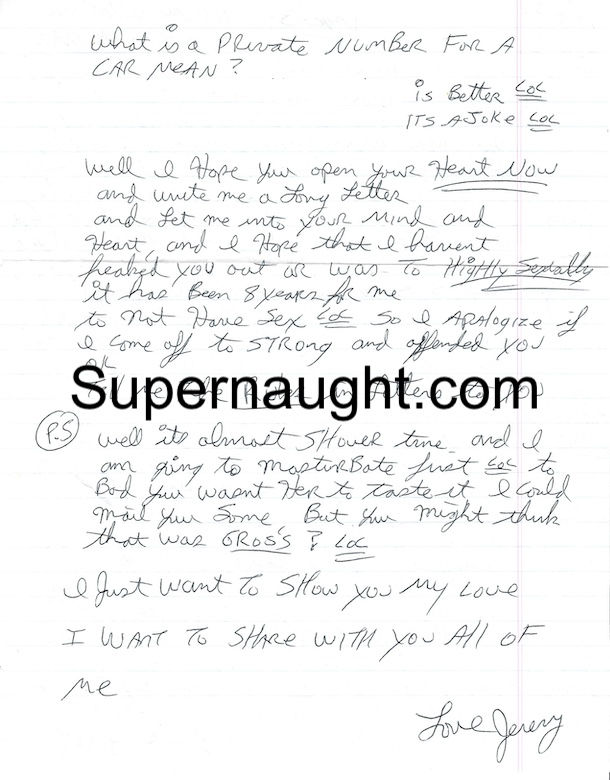 What is a Private Number For A
CAR MEAN?
is Better LOL
ITS A JOKE LOL
Well I Hope you open your Heart Now
and write me a Long Letter
and Let me into your mind and
Heart, and I Hope that I havent
freaked you out or was to Highly Sexually
it has Been 8 years for me
to Not Have Sex LOL So I Apalogize if
I Come off to STRONG and offended you
OK
Supernaught.com
P.S Well its almost SHower time and I
am going to masturBate first LOL to
Bad you wasnt Her to taste it I Could
mail you Some, But you might think
that was GROSS? LOL
I Just want to SHow you My Love
I WANT TO SHARE WITH YOU All OF
Me
Love Jeremy